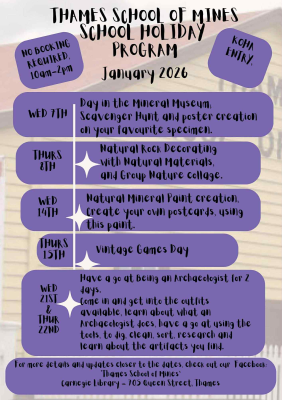 THAMES SCHOOL OF MINES
SCHOOL HOLIDAY
PROGRAM
January 2026
NO BOOKING
REQUIRED.
10am-2pm
KOHA
ENTRY.
WED 7TH
Day in the Mineral Museum,
Scavenger Hunt and poster creation
on your favourite specimen.
THURS
8TH
Natural Rock Decorating
with Natural Materials,
and Group Nature Collage.
WED
14TH
Natural Mineral Paint creation,
Create your own postcards, using
this paint.
THURS
15TH
Vintage Games Day
WED
21ST
&
THUR
22ND
Have a go at Being an Archaeologist for 2
days.
Come in and get into the outfits
available, learn about, what an
Archaeologist does, have a go at using the
tools, to dig, clean, sort, research and
learn about the artifacts you find.
For more details and updates closer to the dates, check out our Facebook:
'Thames School of Mines'
Carnegie Library - 705 Queen Street, Thames